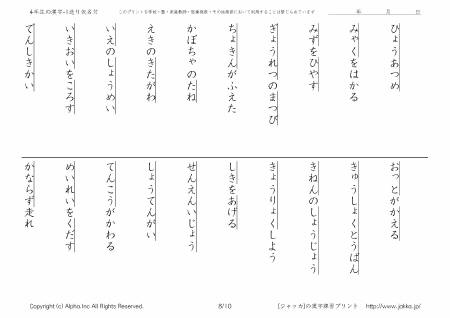 4年生の漢字-1送り仮名付
このプリントを学校・塾・家庭教師・医療機関・その他施設において利用することは禁じられています
年　月　日
ひょうあつめ
みゃくをはかる
みずをひやす
ぎょうれつのまつび
ちょきんがふえた
かぼちゃのたね
えきのきたがわ
いえのしょうめい
いきおいをころす
でんしきかい
おっとがかえる
きゅうしょくとうばん
きねんのしょうじょう
きょうりょくしよう
しきをあげる
せんえんいじょう
しょうてんがい
てんこうがかわる
めいれいをくだす
かならず走れ
Copyright (c) Alpha.Inc All Rights Reserved.
8/10
[ジャッカ]の漢字練習プリント　http://www.jakka.jp/